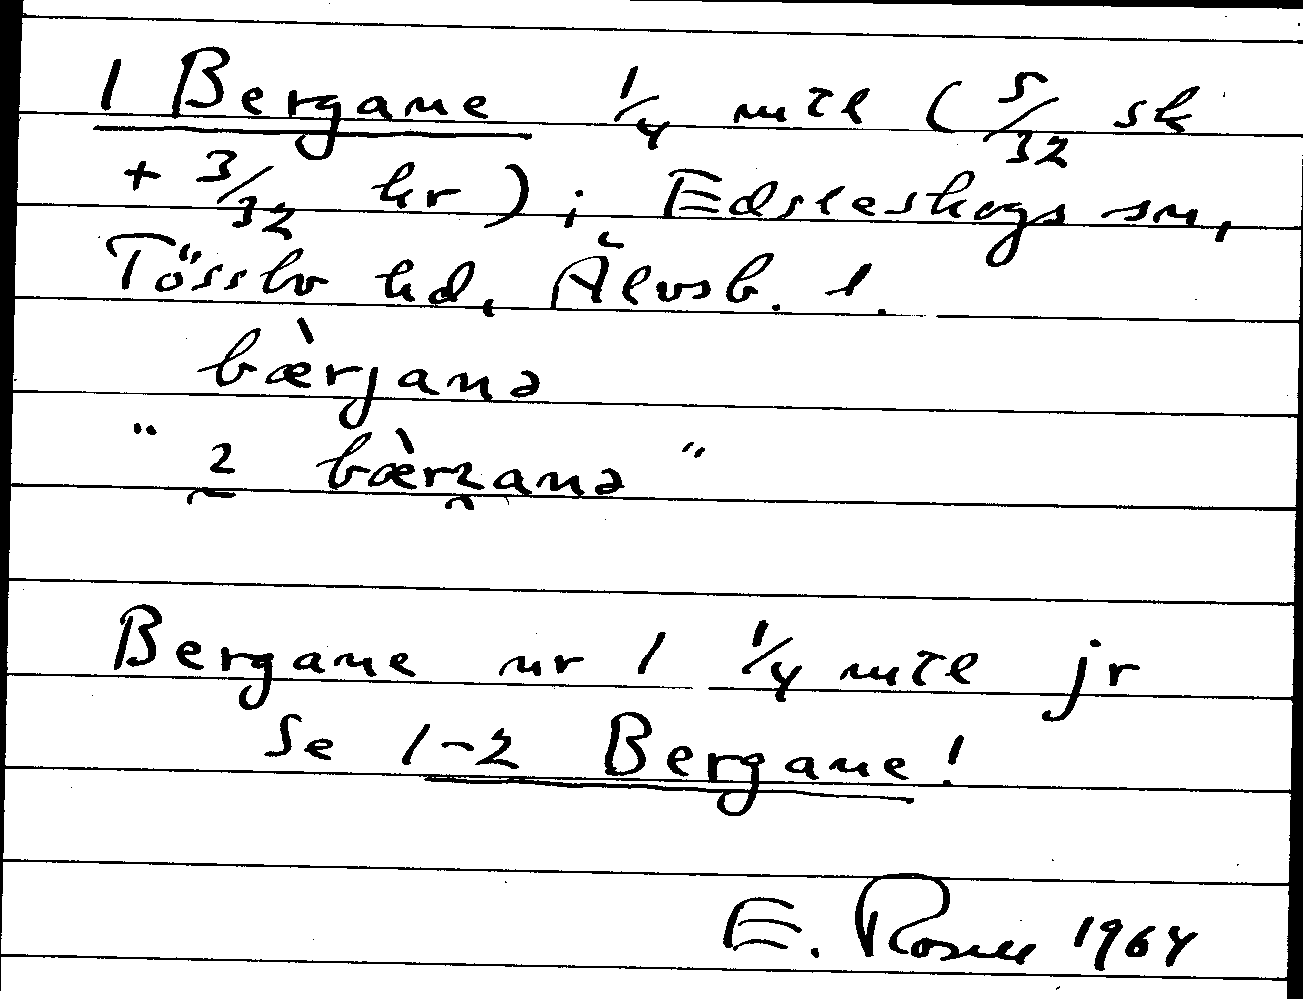 1 Bergane 1/4 mtl (5/32 sk
+ 3/32 kr); Edsleskogs sn,
Tössbo hd, Älvsb. l.
bæ̀rjanə
" 2 bæ̀rʒanə "
Bergane nr 1 1/4 mtl jr
Se 1-2 Bergane!
E. Rosell 1964